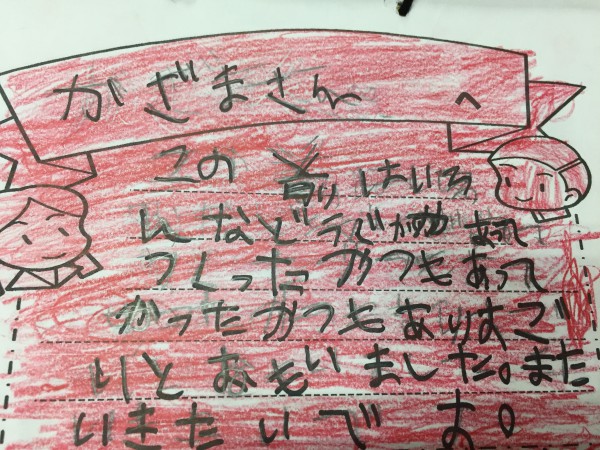 かざまさんへ
この前はいろ
んなどうぐがあって
つくったやつもあって
かったやつもありすご
いとおもいました。また
いきたいです。